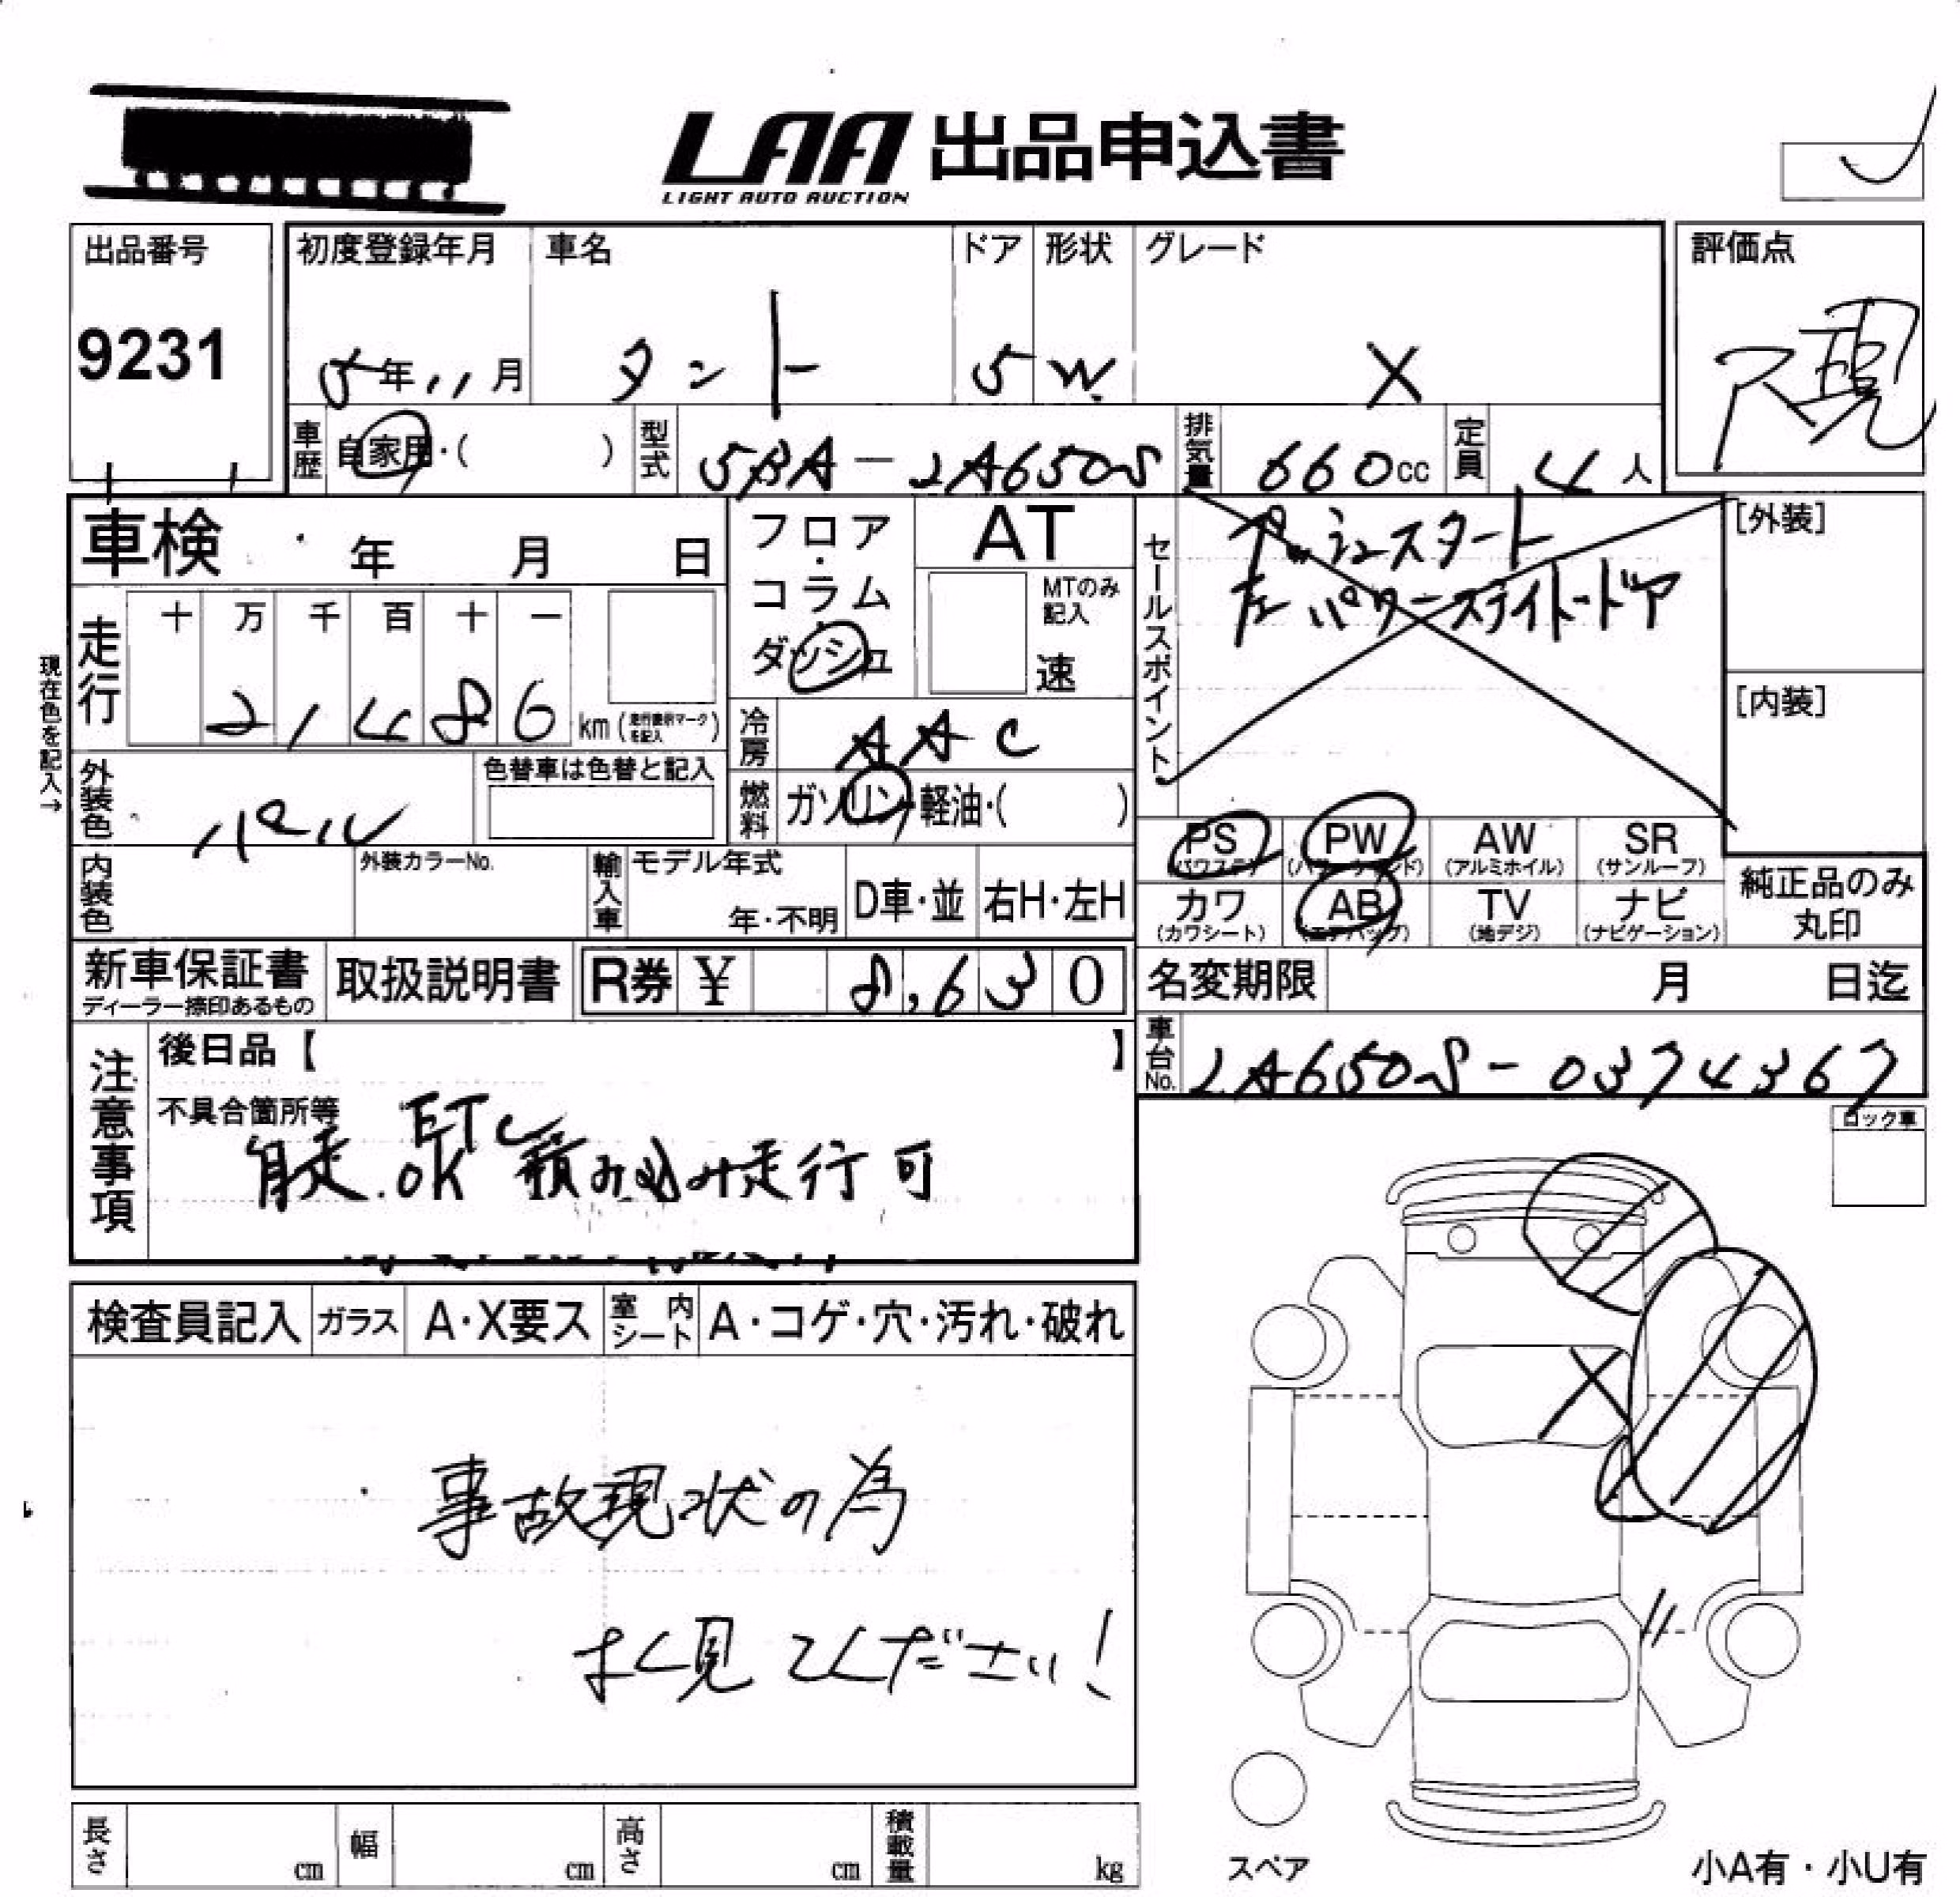 LAA 出品申込書
LIGHT AUTO AUCTION
出品番号
9231
初度登録年月
5年11月
車名
タント
ドア
5
形状
W
グレード
X
評価点
車歴
自家用・( )
型式
5BA-LA650S
排気量
660cc
定員
4人
車検 年 月 日
フロア・コラム・ダッシュ
AT
MTのみ記入
速
セールスポイント
プッシュスタート
左パワースライドドア
[外装]
[内装]
現在色を記入→
走行
十 万 千 百 十 一
21486 km (走行表示マークを記入)
冷房
AAC
外装色
パール
色替車は色替と記入
燃料
ガソリン・軽油・( )
PS (パワステ)
PW (パワーウィンド)
AW (アルミホイル)
SR (サンルーフ)
内装色
外装カラーNo.
輸入車
モデル年式
年・不明
D車・並
右H・左H
カワ (カワシート)
AB (エアバッグ)
TV (地デジ)
ナビ (ナビゲーション)
純正品のみ丸印
新車保証書
ディーラー捺印あるもの
取扱説明書
R券 ¥ 8,630
名変期限 月 日迄
車台No.
LA650S-0374367
注意事項
後日品【 】
不具合箇所等
ETC
自走OK 積み込み走行可
ロック車
検査員記入
ガラス
A・X要ス
室内シート
A・コゲ・穴・汚れ・破れ
事故現状の為
よく見てください!
長さ cm
幅 cm
高さ cm
積載量 kg
スペア
小A有・小U有